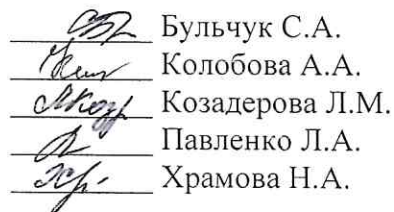 Бульчук С.А.
Колобова А.А.
Козадерова Л.М.
Павленко Л.А.
Храмова Н.А.